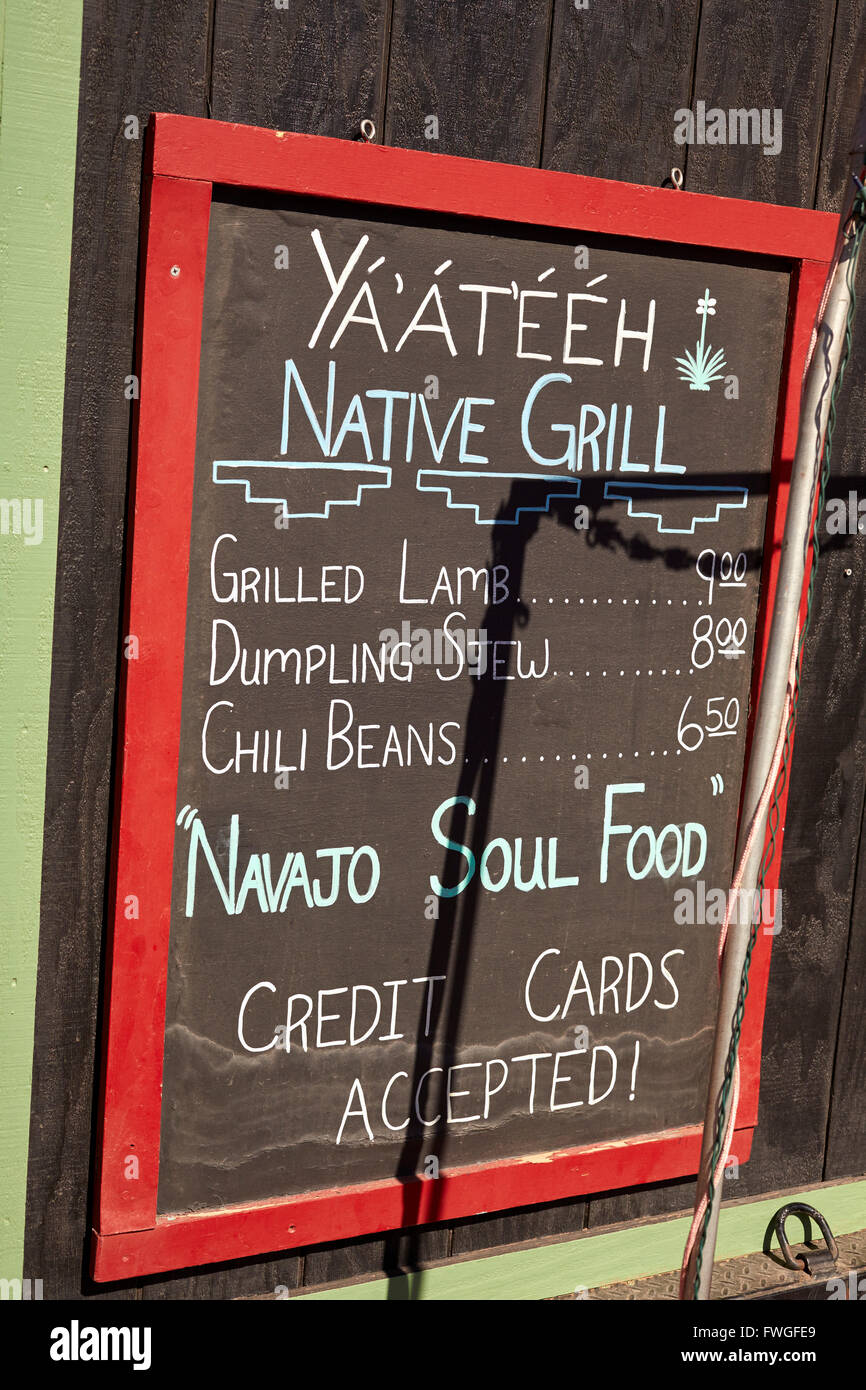 YÁ'ÁT'ÉÉH
NATIVE GRILL
GRILLED LAMB..................9.00
DUMPLING STEW.............8.00
CHILI BEANS..................6.50
"NAVAJO SOUL FOOD"
CREDIT CARDS
ACCEPTED!
alamy
Image ID: FWGFE9
www.alamy.com